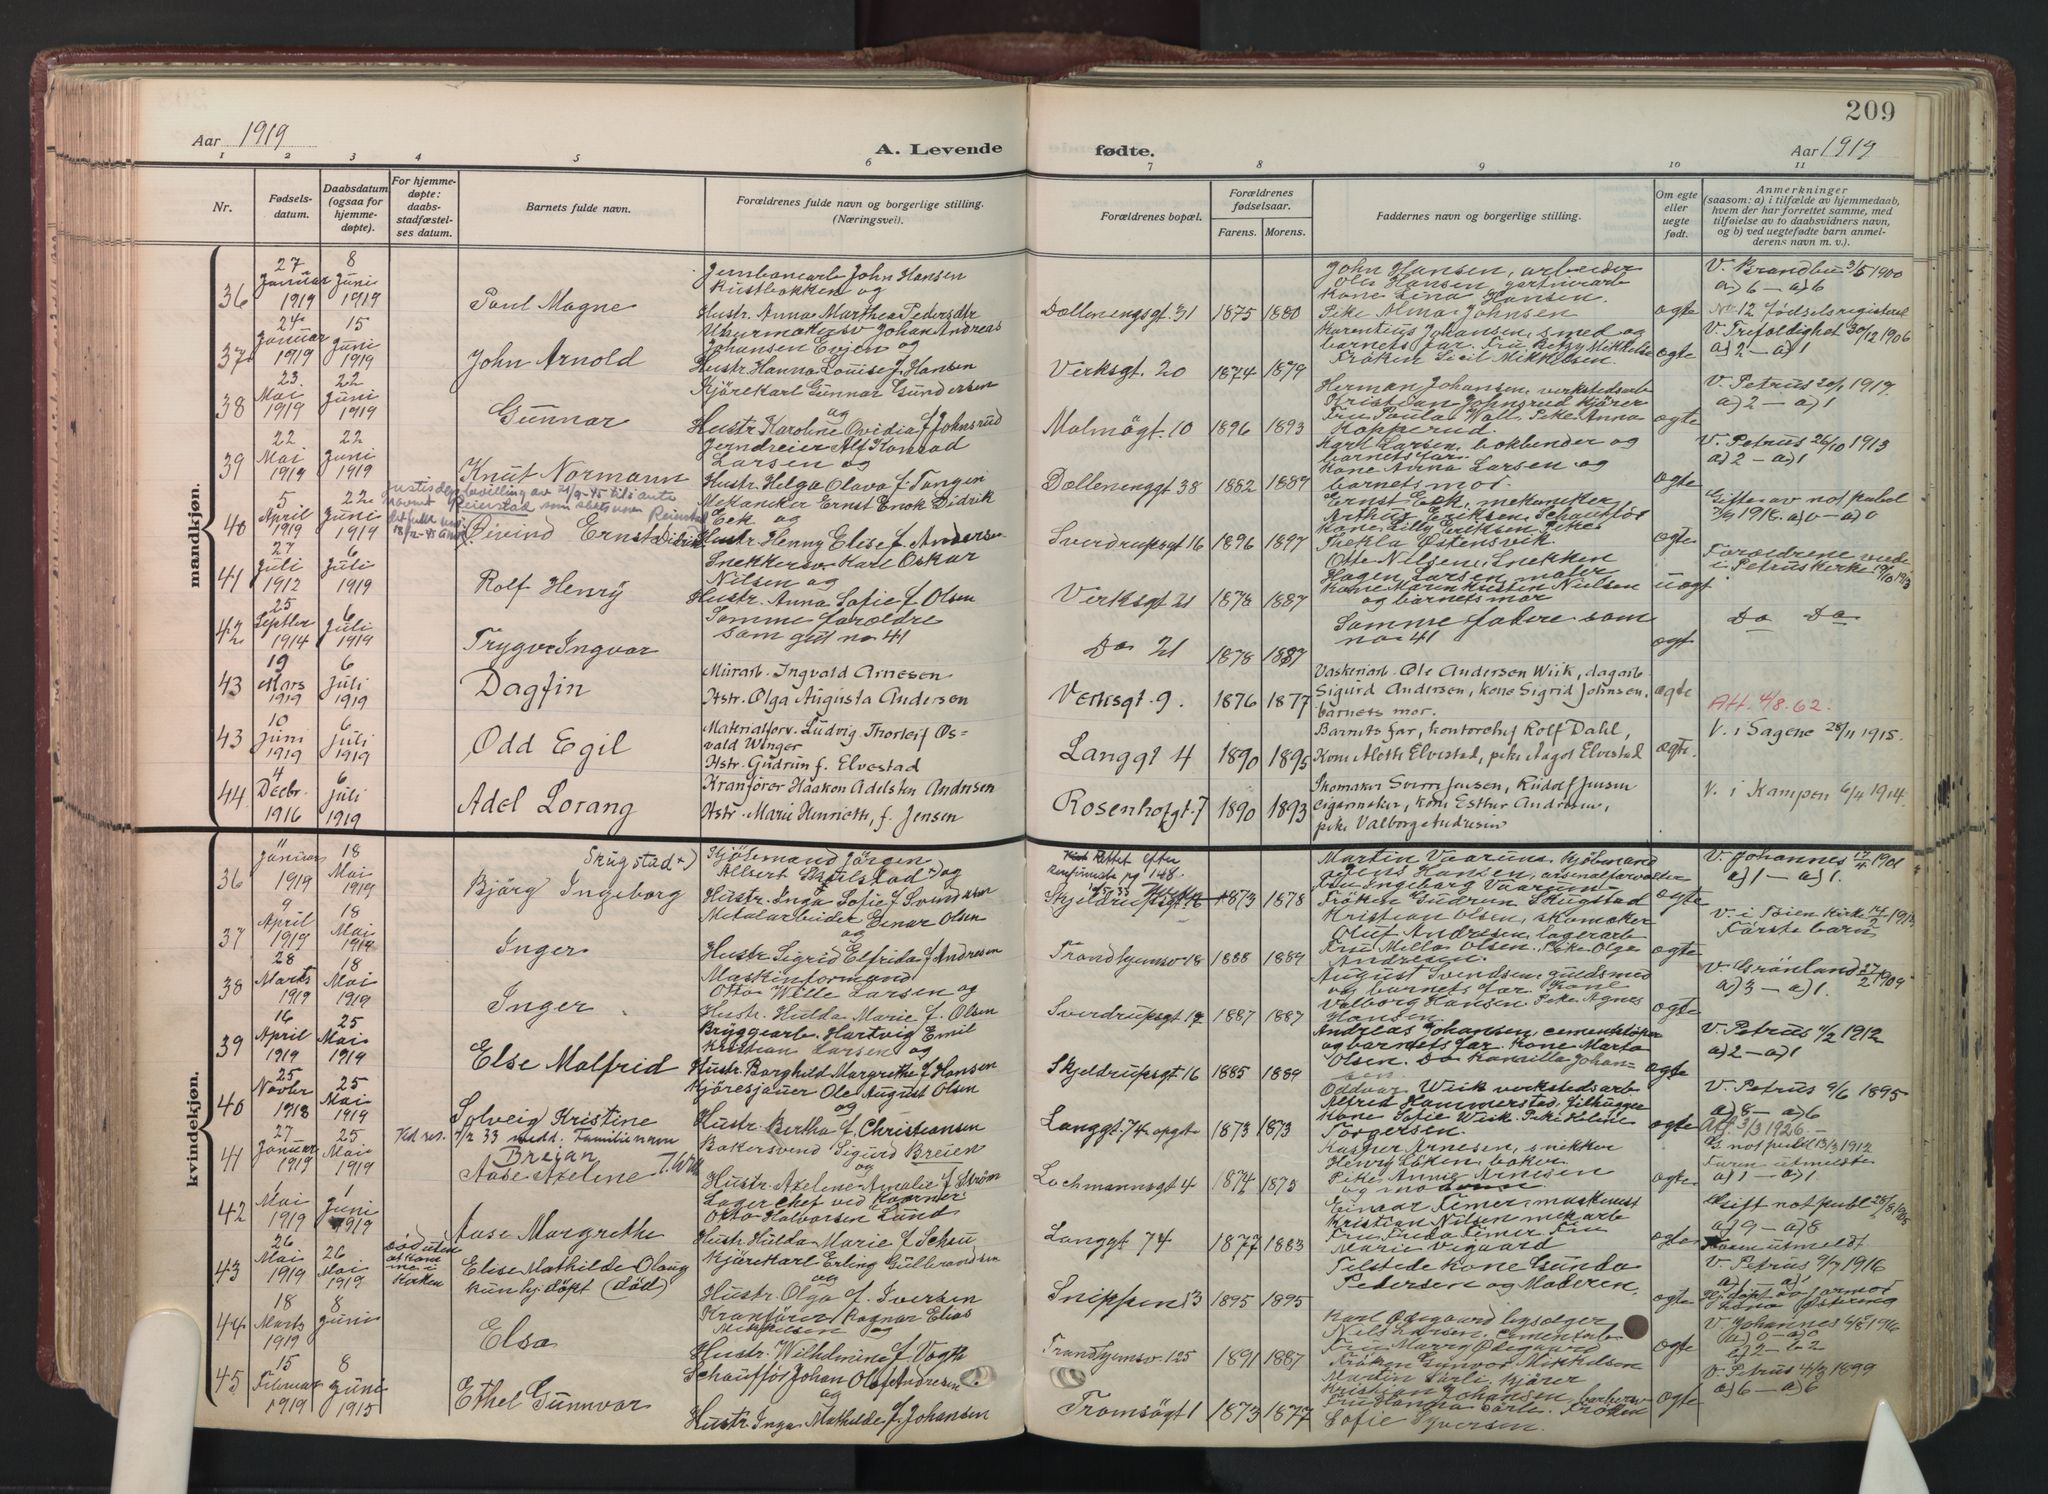 209
Aar 1919
A. Levende
fødte.
Aar 1919
1 2 3 4 5 6 7 8 9 10 11
Nr.
Fødsels-
datum.
Daabsdatum
(ogsaa for
hjemme-
døpte).
For hjemme-
døpte:
daabs-
stadfæstel-
ses datum.
Barnets fulde navn.
Forældrenes fulde navn og borgerlige stilling.
(Næringsvei).
Forældrenes bopæl.
Forældrenes
fødselsaar.
Farens. Morens.
Faddernes navn og borgerlige stilling.
Om egte
eller
uegte
født.
Anmerkninger
(saasom: a) i tilfælde av hjemmedaab,
hvem der har forrettet samme, med
tilføielse av to daabsvidners navn,
og b) ved uegtefødte barn anmel-
derens navn m. v.).
mandkjøn.
36
27 Januar 1919
8 Juni 1919
Paul Magne
John Hansen
Rustbakken og
Hustr. Anna Marthea Pedersdtr
1875 1880
John Hansen, arbeider
Ole Hansen, gartnerarb
Kone Lina Hansen.
Pike Alma Johnsen
egte
V. Brandbu 3/5 1900
a) 6 – a) 6
No 12 fødselsregisteret
37
24 Januar 1919
15 Juni 1919
John Arnold
Johan Andreas
Johansen Evjen og
Hustr. Hanna Louise f. Hansen
Verksgt. 20
1874 1879
Johansen, smed og
barnets far. Fru Betzy Mikkelse
Frøken Sicil Mikkelsen
egte
V. Trefoldighet 30/12 1906
a) 2 – a) 1
38
23. Mai 1919
22 Juni 1919
Gunnar
Kjørekarl Gunnar Gundersen
og
Hustr. Karoline Ovidia f. Johnsrud
Malmøgt. 10
1896 1893
Herman Johansen, verkstedsarb
Kristian Johnsrud kjører
Fru Paula Wall. Pike Anna
Kopperud.
egte
V. Petrus 20/1 1917
a) 2 – a) 1
39
22. Mai 1919
22 Juni 1919
Knut Normann
Jerndreier Alf Konrad
Larsen og
Hustr. Helga Olava f. Tangen
1882 1889
Karl Larsen, bokbinder og
barnets far.
Kone Anna Larsen og
barnets mor.
egte
V. Petrus 26/10 1913
a) 2 – a) 1
40
5 April 1919
22 Juni 1919
Øivind Ernst Didrik
Mekaniker Ernst Enok Didrik
Eek og
Hustr. Henny Elise f. Andersen
Sverdrupsgt 16
1896 1897
Ernst Eek, mekaniker,
Arthur Eriksen, Schauffør
Kone Lilly Eriksen. Pike
Thekla Østensvik.
egte
Gifte av not publ
a) 0 – a) 0
41
27 Juli 1912
6 Juli 1919
Rolf Henry
Snekkersv. Karl Oskar
Nilsen og
Hustr. Anna Sofie f. Olsen
Verksgt 21
1878 1887
Otto Nilsen, Snekker
Hagen Larsen maler
Kone Maren Kristin Nielsen
og barnets mor
uegte
Forældrene viede
i Petrus kirke
42
25 Septbr 1914
6 Juli 1919
Trygve Ingvar
Samme forældre
som gut no 41
Do 21
1878 1887
Samme fadere som
no 41
egte
Do Do
43
19 Mars 1919
6 Juli 1919
Dagfin
Murarb. Ingvald Arnesen
Hstr. Olga Augusta Andersen
Verksgt. 9.
1876 1877
Vaskeriarb. Ole Andersen Wiik, dagarb.
Sigurd Andersen, kone Sigrid Johnsen,
barnets mor.
egte
Att. 4/8.62.
43
10 Juni 1919
6 Juli 1919
Odd Egil
Materialforv. Ludvig Thorleif Os-
vald Winger
Hstr. Gudrun f. Elvestad
Langgt 4
1890 1895
Barnets far, kontorchef Rolf Dahl,
Kone Aleth Elvestad, pike Aagot Elvestad
egte.
V. i Sagene 28/11 1915.
44
4 Decbr. 1916
6 Juli 1919
Adel Lorang
Kranfører Haakon Adelsten Andersen
Hstr. Marie Henriette, f. Jensen
Rosenhofgt. 7
1890 1893
Skomaker Sverre Jensen, Rudolf Jensen
cigarmaker, kone Esther Andersen,
pike Valborg Andersen
V. i Kampen 6/4 1914.
kvindekjøn.
36
11 Januar 1919
18 Mai 1919
Skugstad +)
Bjørg Ingeborg
Kjøbmand Jørgen
Albert Skulstad +) og
Hustr. Inga Sofie f. Svendsen
Rettet efter
1873 1878
Martin Vaarum, kjøbmand
Jens Hansen, arsenalforvalter
Fru Ingeborg Vaarum
Frøken Gudrun Skugstad
egte
V. Johannes 1901
a) 1 – a) 1.
37
9 April 1919
18 Mai 1919
Inger
Metalarbeider Einar Olsen
og
Hustr. Sigrid Elfrida f. Andresen
Trondhjemsv 18
1888 1889
Kristian Olsen, skomaker
Oluf Andresen, lagerarb
Fru Milla Olsen. Pike Olga
Andresen.
egte
Første barn
38
28 Marts 1919
18 Mai 1919
Inger
Maskinformand
Otto Wille Larsen og
Hustr. Hulda Marie f. Olsen
Sverdrupsgt 17
1887 1887
August Svendsen, guldsmed
og barnets far. Kone
Valborg Hansen. Pike Agnes
Hansen
egte
V. Grønland 27/2 1909
a) 3 – a) 1.
39
16 April 1919
25 Mai 1919
Else Malfrid
Bryggearb. Hartvig Emil
Kristian Larsen og
Hustr. Borghild Margrethe f. Hansen
Skjeldrupsgt 16
1885 1889
Andreas Johansen, cementstøper
og barnets far. Kone Marta
Olsen. Do Kamilla Johan-
sen.
egte
V. Petrus 4/2 1912
a) 2 – a) 1
40
25 Novbr 1918
25 Mai 1919
Solveig Kristine
Kjøresjauer Ole August Olsen
og
Hustr. Bertha f. Christiansen
Langgt. 74
1873 1873
Oddvar Wiik verkstedsarb.
Alfred Hammerstad, Filhugger
Kone Sofie Wiik. Pike Helene
Torgersen.
egte
V. Petrus 9/6 1895
a) 8 – a) 6
Att. 3/3 1926.
41
27 Januar 1919
25 Mai 1919
Ved res. 7/2 33 medd. Familienavn
Breian
Aase Axeline
Bakersvend Sigurd Breien
og
Hustr. Axeline Amalie f. Strøm
Lochmannsgt 4
1873
Kasper Arnesen, snekker
Henry Løken, baker
Pike Annie Arnesen
egte
not publ 13/3 1912
Faren utmeldt
a) 1 – a) 1
42
1 Mai 1919
1 Juni 1919
Aase Margrethe
Lagerchef ved Kværner
Otto Halvorsen Lund
Hustr. Hulda Marie f. Schou
Langgt 74
1877 1883
Einar Femer, maskinist
Kristian Nilsen mek arb
Fru Frida Femer Fru
Marie Vegaard
egte
Gift not publ 28/8 1905
a) 9 – a) 8
43
26 Mai 1919
26 Mai 1919
Død uten
at komme i
Kirken
Elise Mathilde Olaug
kun hj. døpt (død)
Kjørekarl Erling Gulbrandsen
og
Hustr. Olga f. Iversen
Snippen 13
1895 1895
Tilstede kone Gunda
Pedersen og Moderen.
egte
V. Petrus 9/7 1916
Hj. døpt av jormor
44
18 Marts 1919
8 Juni
Elsa
Kranfører Ragnar Elias
Mikkelsen og
Hustr. Wilhelmine f. Vogth
Trondhjemsv. 125
1891 1887
Karl Ødegaard
Nils Larsen, cementarb
Fru Marry Ødegaard
Frøken Gunvor Mikkelsen
egte
V. Johannes 1916
a) 0 – a) 0
b) 2 – b 2
45
15 Februar 1919
8 Juni 1915
Ethel Gunnvor
Schauffør Johan Olaf Andresen
og
Hustr. Inga Mathilde f. Johansen
Tromsøgt 1
1873 1877
Martin Sørli, kjører
Kristian Johansen, barbersv
Sofie Syversen.
egte
V. Petrus 4/3 1899
a) 6 – a) 6